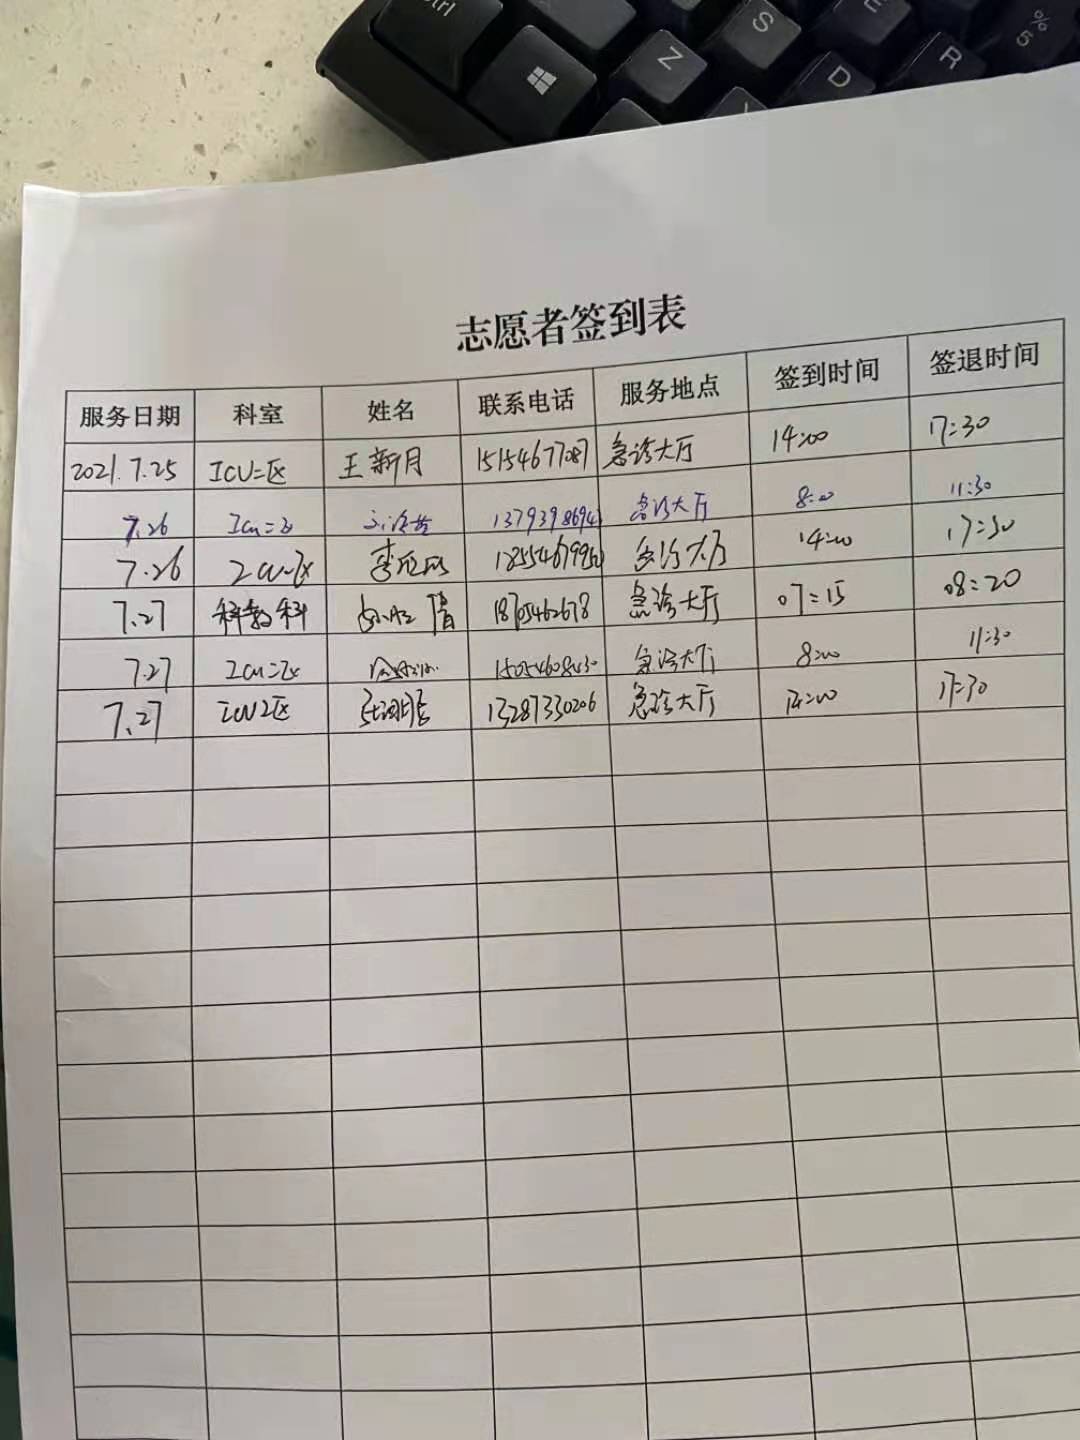 Ctrl
Z
S
D
E
R
%
5
志愿者签到表
服务日期 科室 姓名 联系电话 服务地点 签到时间 签退时间
2021.7.25 ICU二区 王新月 15154677087 急诊大厅 14:00 17:30
7.26 Icu二区 急诊大厅 8:00 11:30
7.26 急诊大厅 14:00 17:30
7.27 科教科 18705462678 急诊大厅 07:15 08:20
7.27 Icu二区 急诊大厅 8:00 11:30
7.27 ICU2区 13287330206 急诊大厅 14:00 17:30